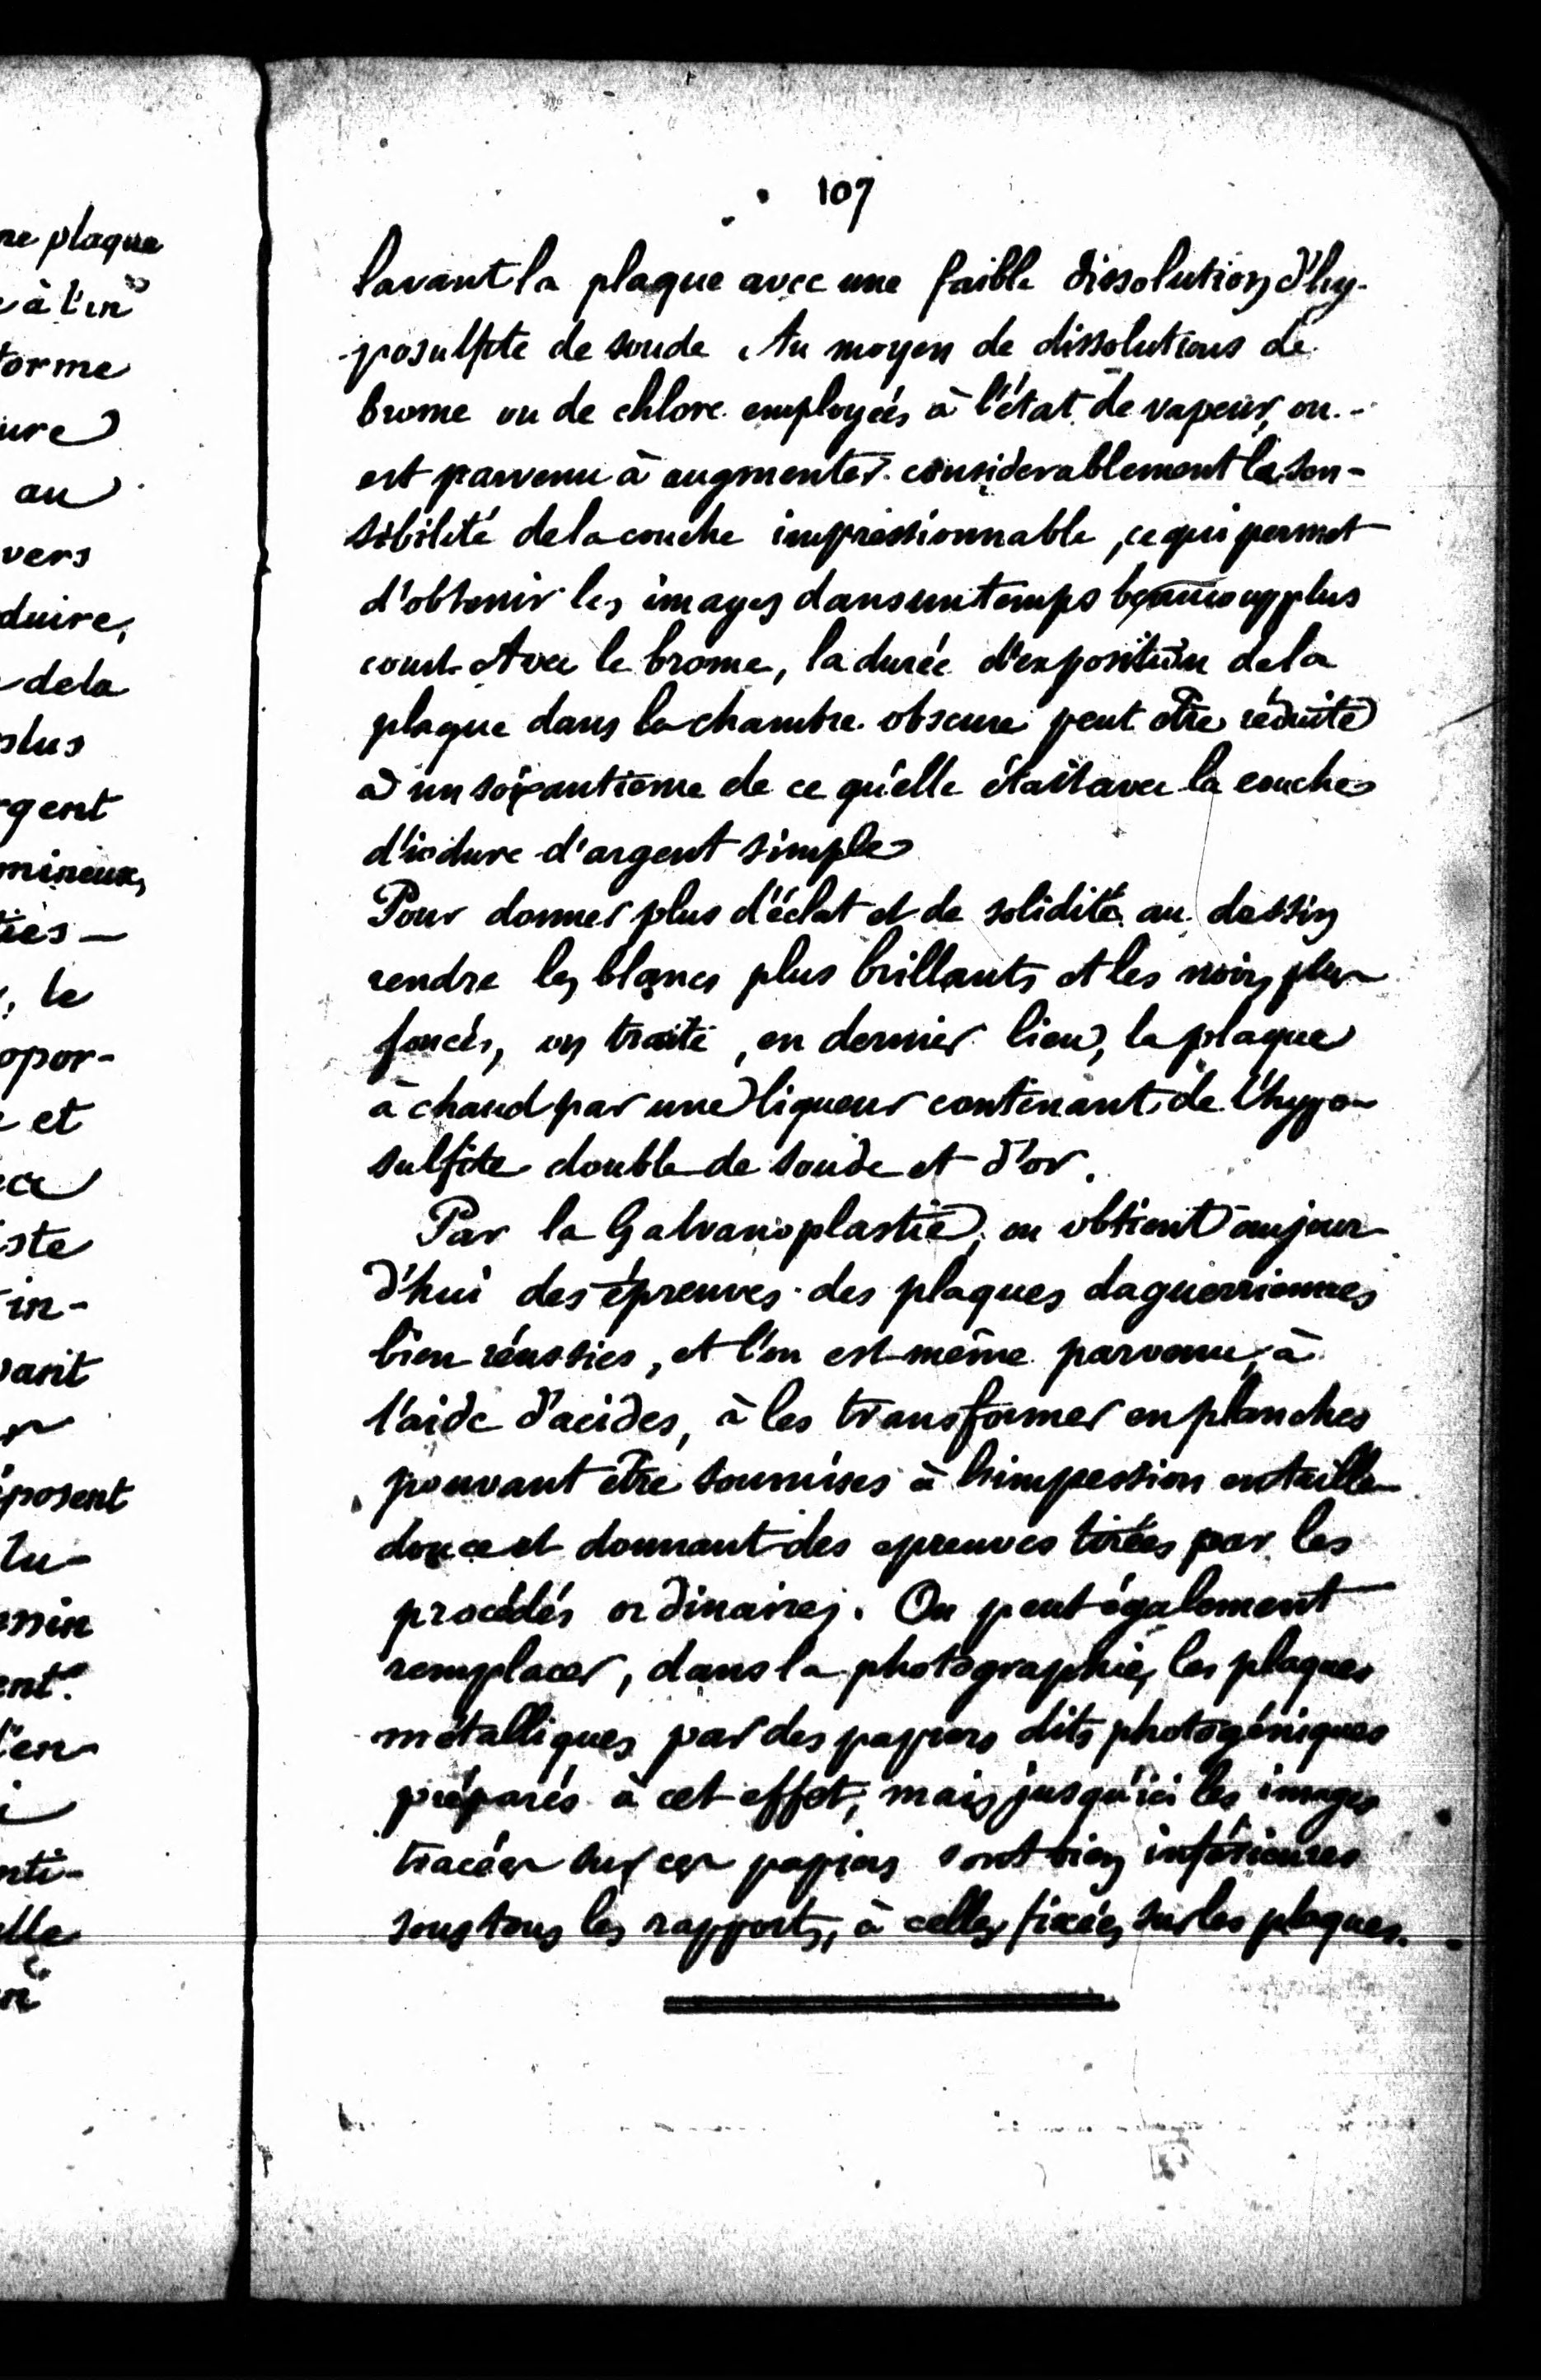 ne plaque
à l'in
forme
ure
au
vers
duire,
dela
plus
rgent
mineux,
ties —
, le
opor-
et
iste
in-
vant
posent
lu-
ssin
ent.
l'en
nti-
elle
107
lavant la plaque avec une faible dissolution d'hy-
posulfite de soude. Au moyen de dissolutions de
brome ou de chlore employées à l'état de vapeur, on
est parvenu à augmenter considerablement la sen-
sibilité de la couche impressionnable, ce qui permet
d'obtenir les images dans un temps beaucoup plus
court. Avec le brome, la durée d'exposition de la
plaque dans la chambre obscure peut être réduite
à un soixantième de ce qu'elle était avec la couche
d'iodure d'argent simple
Pour donner plus d'éclat et de solidité au dessin
rendre les blancs plus brillants et les noirs plus
foncés, on traite, en dernier lieu, la plaque
à chaud par une liqueur contenant de l'hypo-
sulfite double de soude et d'or.
Par la Galvanoplastie, on obtient aujour
d'hui des épreuves des plaques daguerriennes
bien réussies, et l'on est même parvenu, à
l'aide d'acides, à les transformer en planches
pouvant être soumises à l'impession en taille
douce et donnant des epreuves tirées par les
procédés ordinaires. On peut également
remplacer, dans la photographie, les plaques
métalliques par des papiers dits photogéniques
préparés à cet effet; mais jusqu'ici les images
tracées sur ces papiers sont bien inférieures
sous tous les rapports, à celles fixées sur les plaques.